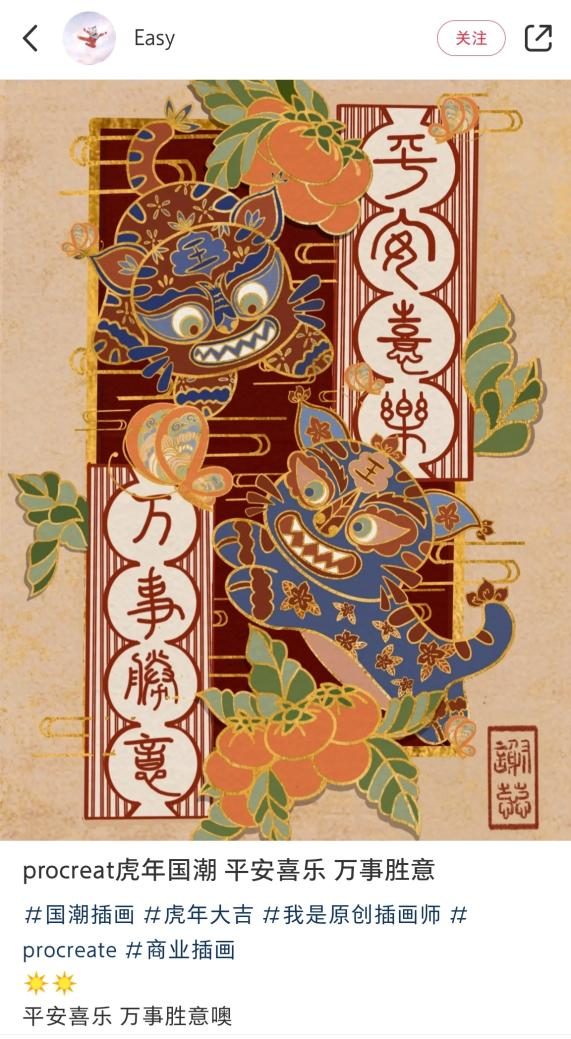 Easy
关注
平安喜樂
万事勝意
王
王
謝蕊
procreat虎年国潮 平安喜乐 万事胜意
#国潮插画 #虎年大吉 #我是原创插画师 #
procreate #商业插画
平安喜乐 万事胜意噢